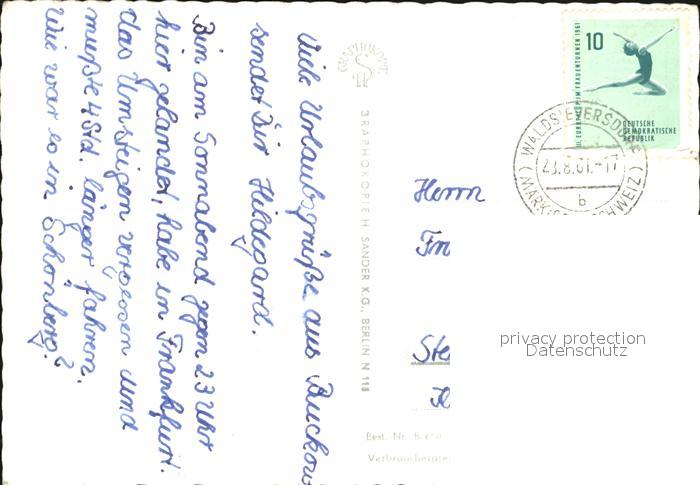 Viele Urlaubsgrüße aus Buckow
sendet Dir Hildegard.
Bin am Sonnabend gegen 23 Uhr
hier gelandet, habe in Frankfurt
das Umsteigen vergessen und
mußte 4 Std. länger fahren.
Wie war es in Schönberg?
GRAPHOKOPIE
GRAPHOKOPIE H. SANDER K.G., BERLIN N 113
10
III. EUROPAPOKAL IM FRAUENTURNEN 1961
DEUTSCHE
DEMOKRATISCHE
REPUBLIK
WALDSIEVERSDORF
23.8.61.-17
b
(MÄRKISCHE SCHWEIZ)
Herrn
Ste
privacy protection
Datenschutz
Best.-Nr. B
Verbraucherpreis